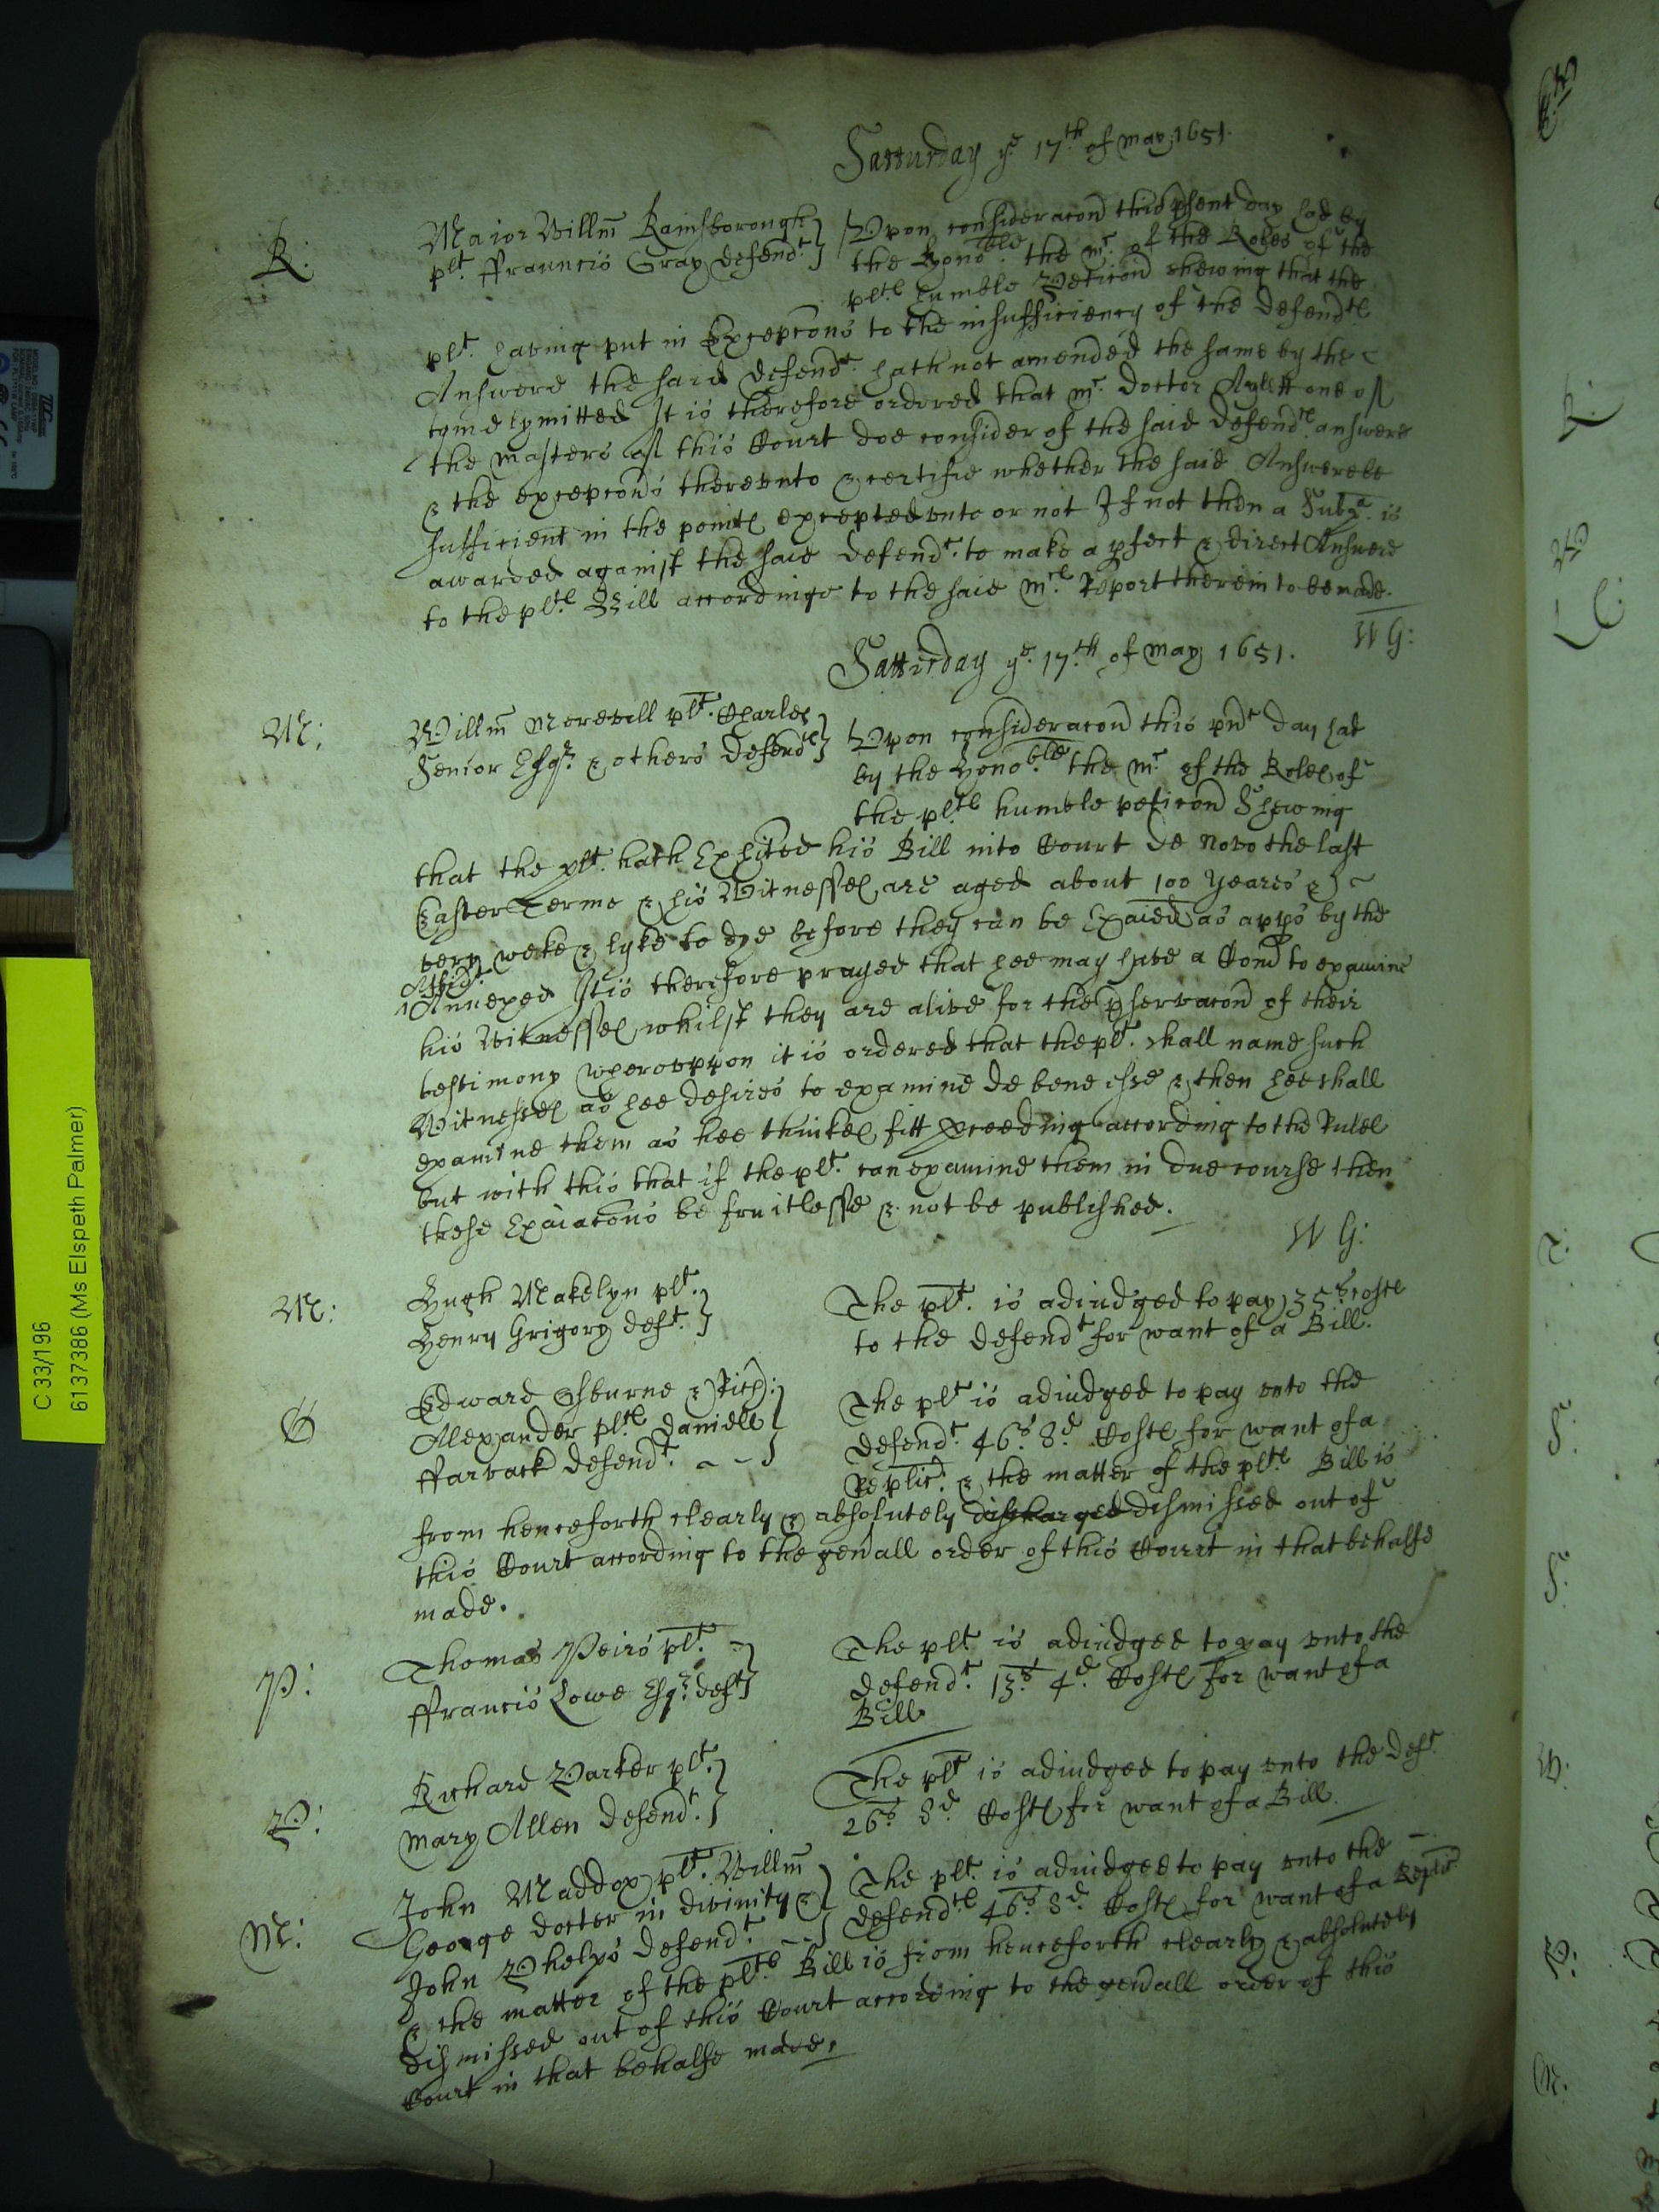 Satturday ye 17th of may 1651.
R:
Maior Willm Rainsborough
plt. ffrauncis Gray defendt.
Vpon consideracon this psent day had by
the Honoble. the mr. of the Roles of the
pltes humble Peticon shewing that the
plt. haveing put in Excepcons to the insufficiency of the defendtes
Answere the said defendt. hath not amended the same by the
tyme lymitted It is therefore ordered that mr. doctor Aylett one of
the masters of this Court doe consider of the said defendtes answere
& the excepcons therevnto & certifie whether the said Answere be
sufficient in the pointes excepted vnto or not If not then a Subpa. is
awarded against the said defendt. to make a pfect & direct Answere
to the pltes Bill accordinge to the said mres Report therein to be made.
WG:
Satturday ye. 17.th of may 1651.
M:
Willm Merevill plt. Charles
Senior Esqr. & others defendtes
Vpon consideracon this pnt day had
by the Honoble the mr. of the Roles of
the pltes humble peticon Shewing
that the plt. hath Exhited his Bill into Court de novo the last
Easter Terme & his Witnesses are aged about 100 yeares &
very weke & lyke to dye before they can be Exaied as appes by the
Affidt.
Annexed It is therefore prayed that hee may have a Comn to examine
his Witnesses whilst they are alive for the pservacon of their
testimony wherevppon it is ordered that the plt. shall name such
Witnesses as hee desires to examine de bene esse & then hee shall
examine them as hee thinkes fitt proceeding according to the Rules
but with this that if the plt. can examine them in due course then
these Exaiacons be fruitlesse & not be published.
WG:
M:
Hugh Makelyn plt.
Henry Grigory deft.
The plt. is adiudged to pay 35s costes
to the defendt for want of a Bill.
O
Edward Osburne & Rich:
Alexander pltes daniell
ffarrack defendt.
The plt is adiudged to pay vnto the
defendt. 46s. 8d. Costes for want of a
Replic. & the matter of the pltes Bill is
from henceforth clearly & absolutely discharged dismissed out of
this Court according to the genall order of this Court in that behalfe
made.
P:
Thomas Peirs plt.
ffrancis Lowe Esqr. deft
The plt. is adiudged to pay vnto the
defendt. 13s. 4d. Costes for want of a
Bill
P:
Richard Parker plt.
mary Allen defendt.
The plt is adiudged to pay vnto the deft.
26s. 8d. Costes for want of a Bill.
M:
John Maddox plt. Willm
George doctor in divinity &
John Phelps defendt.
The plt. is adiudged to pay vnto the
defendtes 46s. 8d. Costes for want of a Replic.
& the matter of the pltes Bill is from henceforth clearly & absolutely
dismissed out of this Court according to the genall order of this
Court in that behalfe made.
C 33/196
6137386 (Ms Elspeth Palmer)